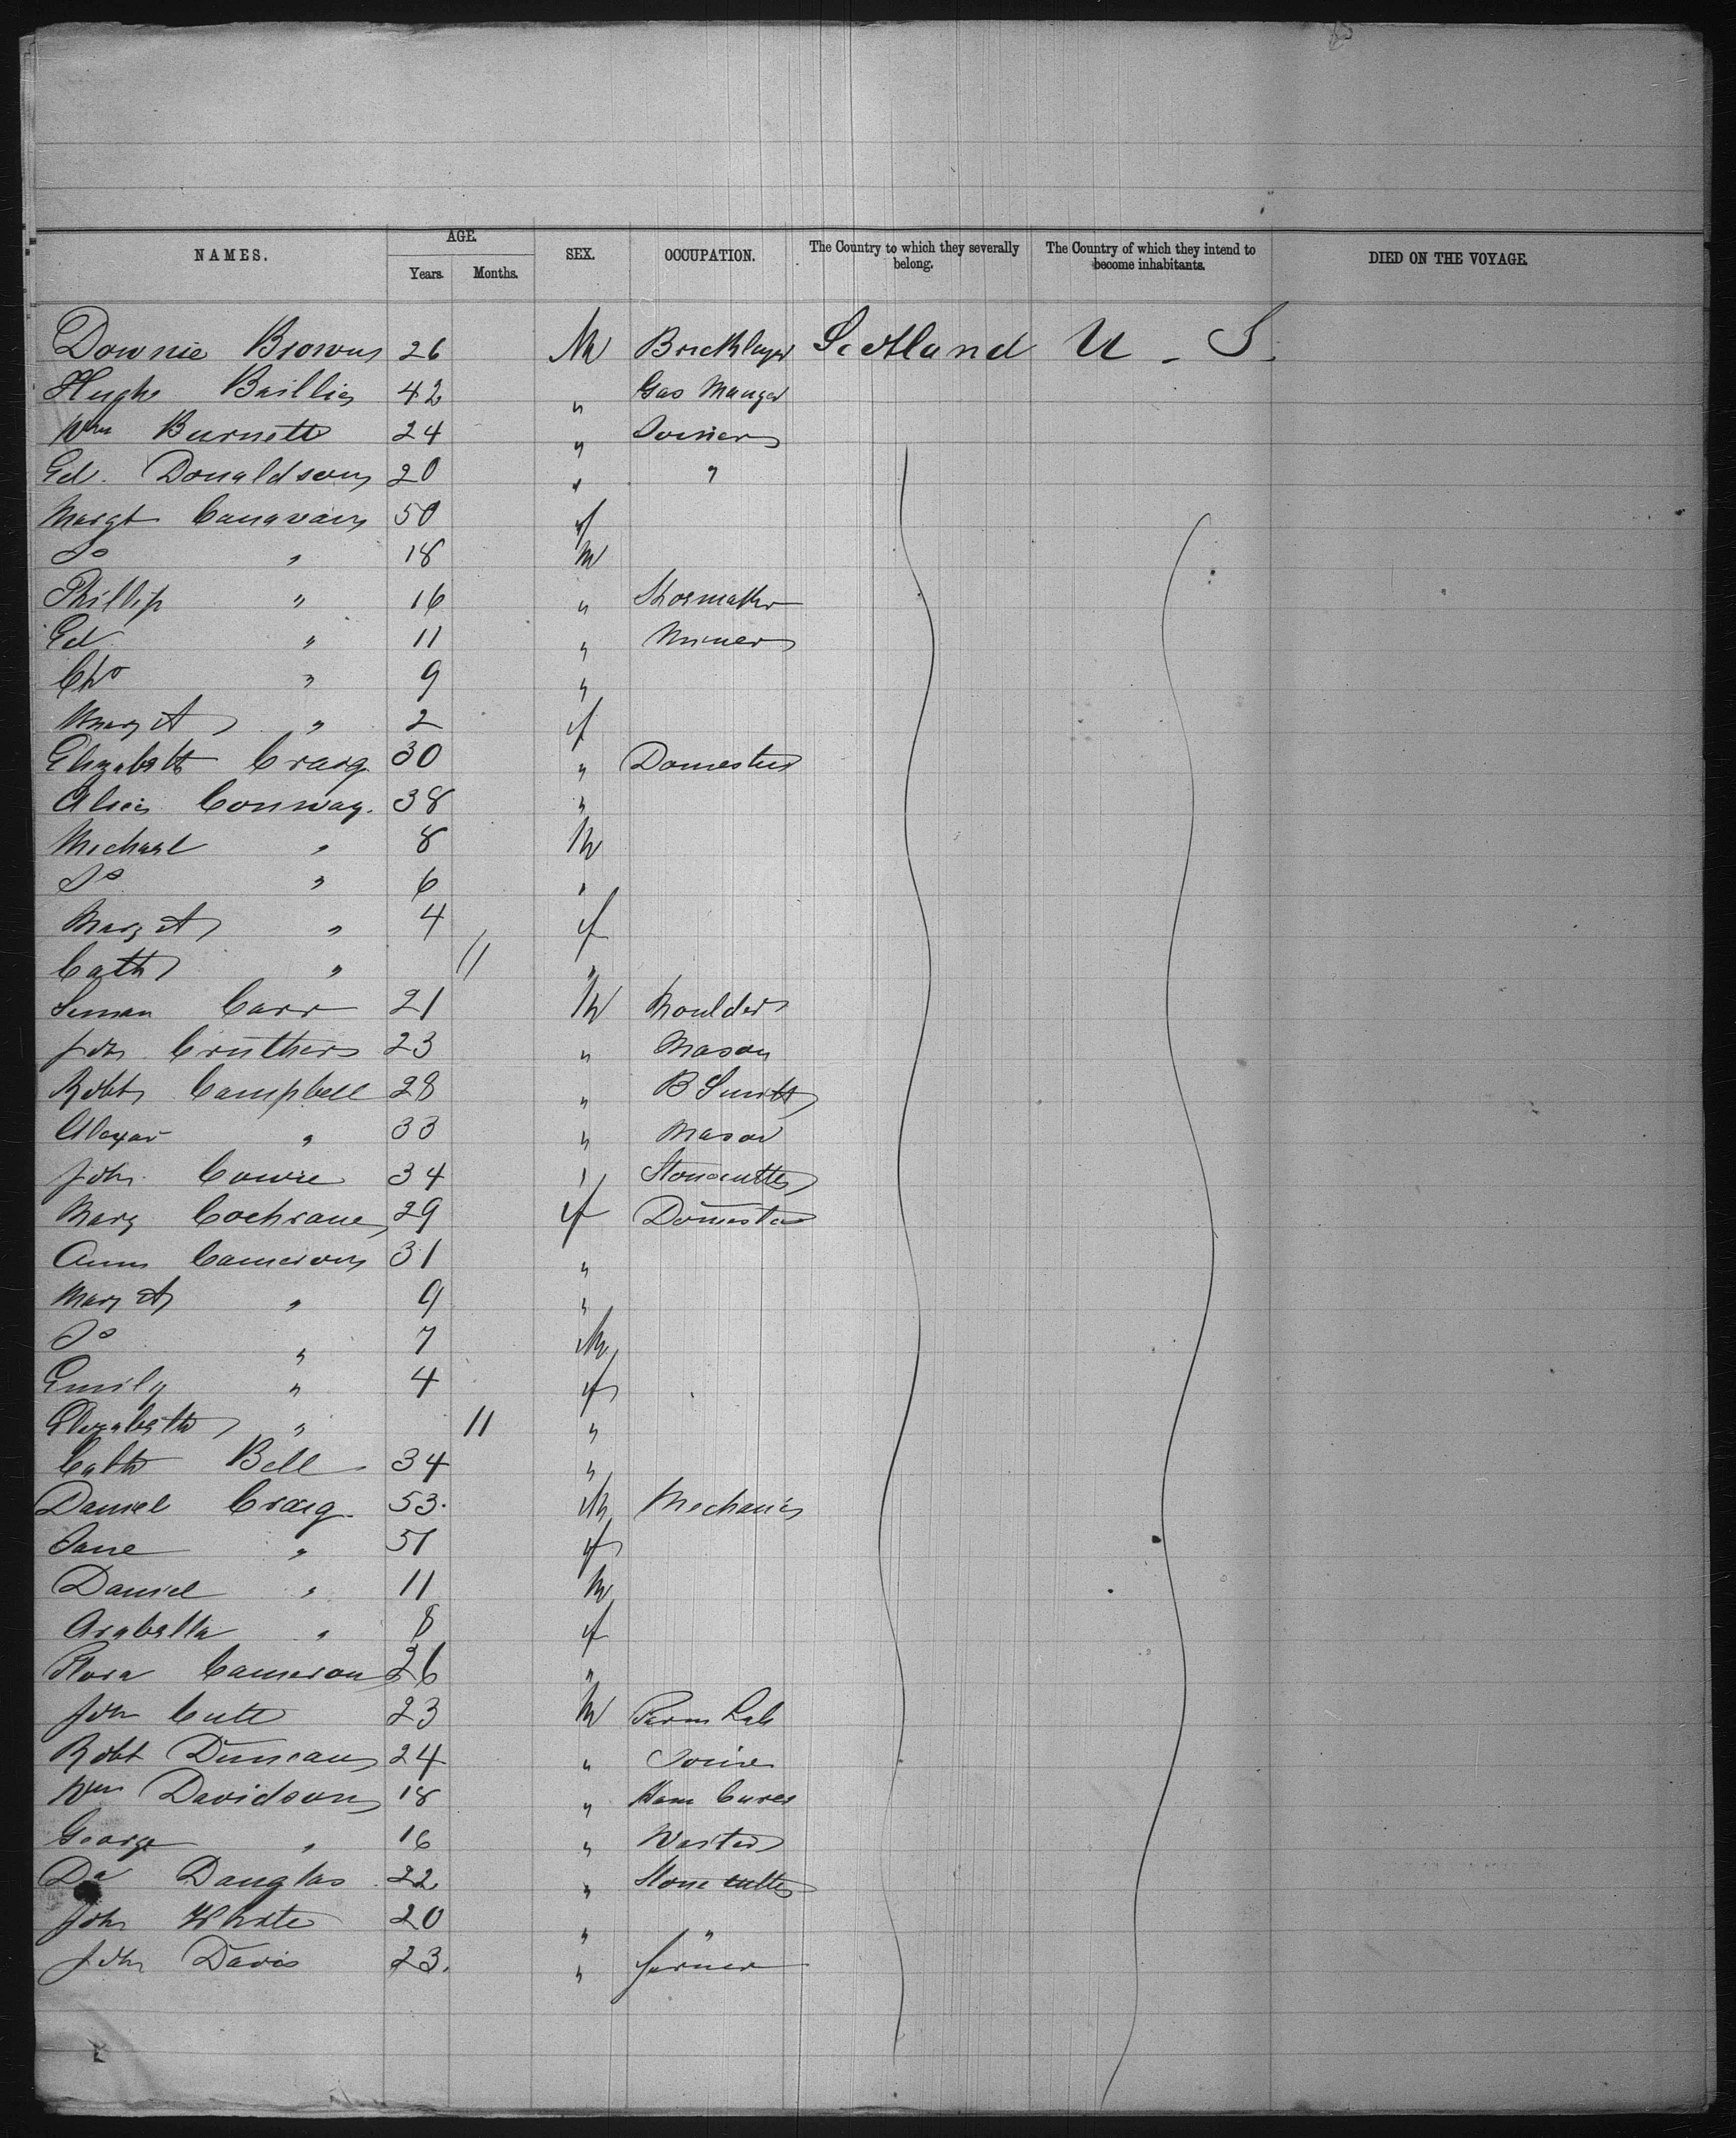 NAMES. AGE. Years. Months. SEX. OCCUPATION. The Country to which they severally belong. The Country of which they intend to become inhabitants. DIED ON THE VOYAGE.
Downie Brown 26 M Bricklayer Scotland U. S.
Hugh Baillie 42 " Gas Manger
Wm Burnett 24 " Joiner
Ed. Donaldson 20 " "
Margt Canavan 50 f
Jo " 18 M
Phillip " 16 " Shoemaker
Ed " 11 " Miner
Chs " 9 "
Mary A " 2 f
Elizabeth Craig 30 " Domestic
Alice Conway. 38 "
Michael " 8 M
Jo " 6 "
Mary A " 4 f
Cath " 11 "
Carr 21 M Moulder
John Cruthers 23 " Mason
Robt Campbell 28 " B Smith
Alexar " 33 " Mason
John Cowie 34 " Stonecutter
Mary Cochrane 29 f Domestic
Ann Cameron 31 "
Mary A " 9 "
Jo " 7 M
Emily " 4 f
Elizabeth " 11 "
Cath Bell 34 "
Daniel Craig 53. M Mechanic
Jane " 51 f
Daniel " 11 M
Arabella " 8 f
Flora Cameron 26 "
John Cutt 23 M Farm Lab
Robt Duncan 24 " Joiner
Wm Davidson 18 " Ham Curer
George " 16 "
Dd Douglas 22 " Stone cutter
John White 20 " "
John Davis 23. " farmer